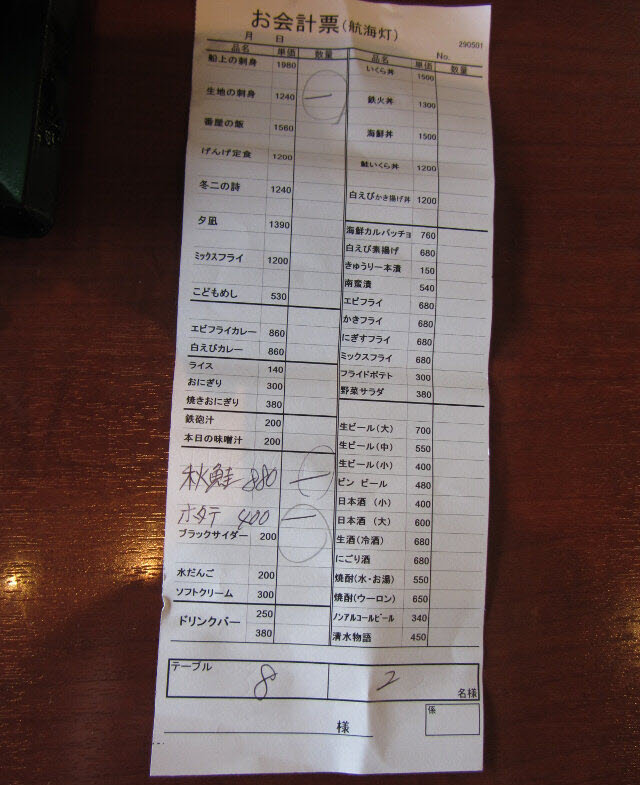 お会計票(航海灯)
290501
月 日 No.
品名 単価 数量
船上の刺身 1980
生地の刺身 1240 一
番屋の飯 1580
げんげ定食 1200
冬二の詩 1240
夕凪 1390
ミックスフライ 1200
こどもめし 530
エビフライカレー 860
白えびカレー 860
ライス 140
おにぎり 300
焼きおにぎり 380
鉄砲汁 200
本日の味噌汁 200
秋鮭 880 一
ホタテ 400 一
ブラックサイダー 200
水だんご 200
ソフトクリーム 300
ドリンクバー 250
380
品名 単価 数量
いくら丼 1500
鉄火丼 1300
海鮮丼 1500
鮭いくら丼 1200
白えびかき揚げ丼 1200
海鮮カルパッチョ 760
白えび素揚げ 680
きゅうり一本漬 150
南蛮漬 540
エビフライ 680
かきフライ 680
にぎすフライ 680
ミックスフライ 680
フライドポテト 300
野菜サラダ 380
生ビール(大) 700
生ビール(中) 550
生ビール(小) 400
ビン ビール 480
日本酒 (小) 400
日本酒 (大) 600
生酒(冷酒) 680
にごり酒 680
焼酎(水・お湯) 550
焼酎(ウーロン) 650
ノンアルコールビール 340
清水物語 450
テーブル 8 2 名様
様 係